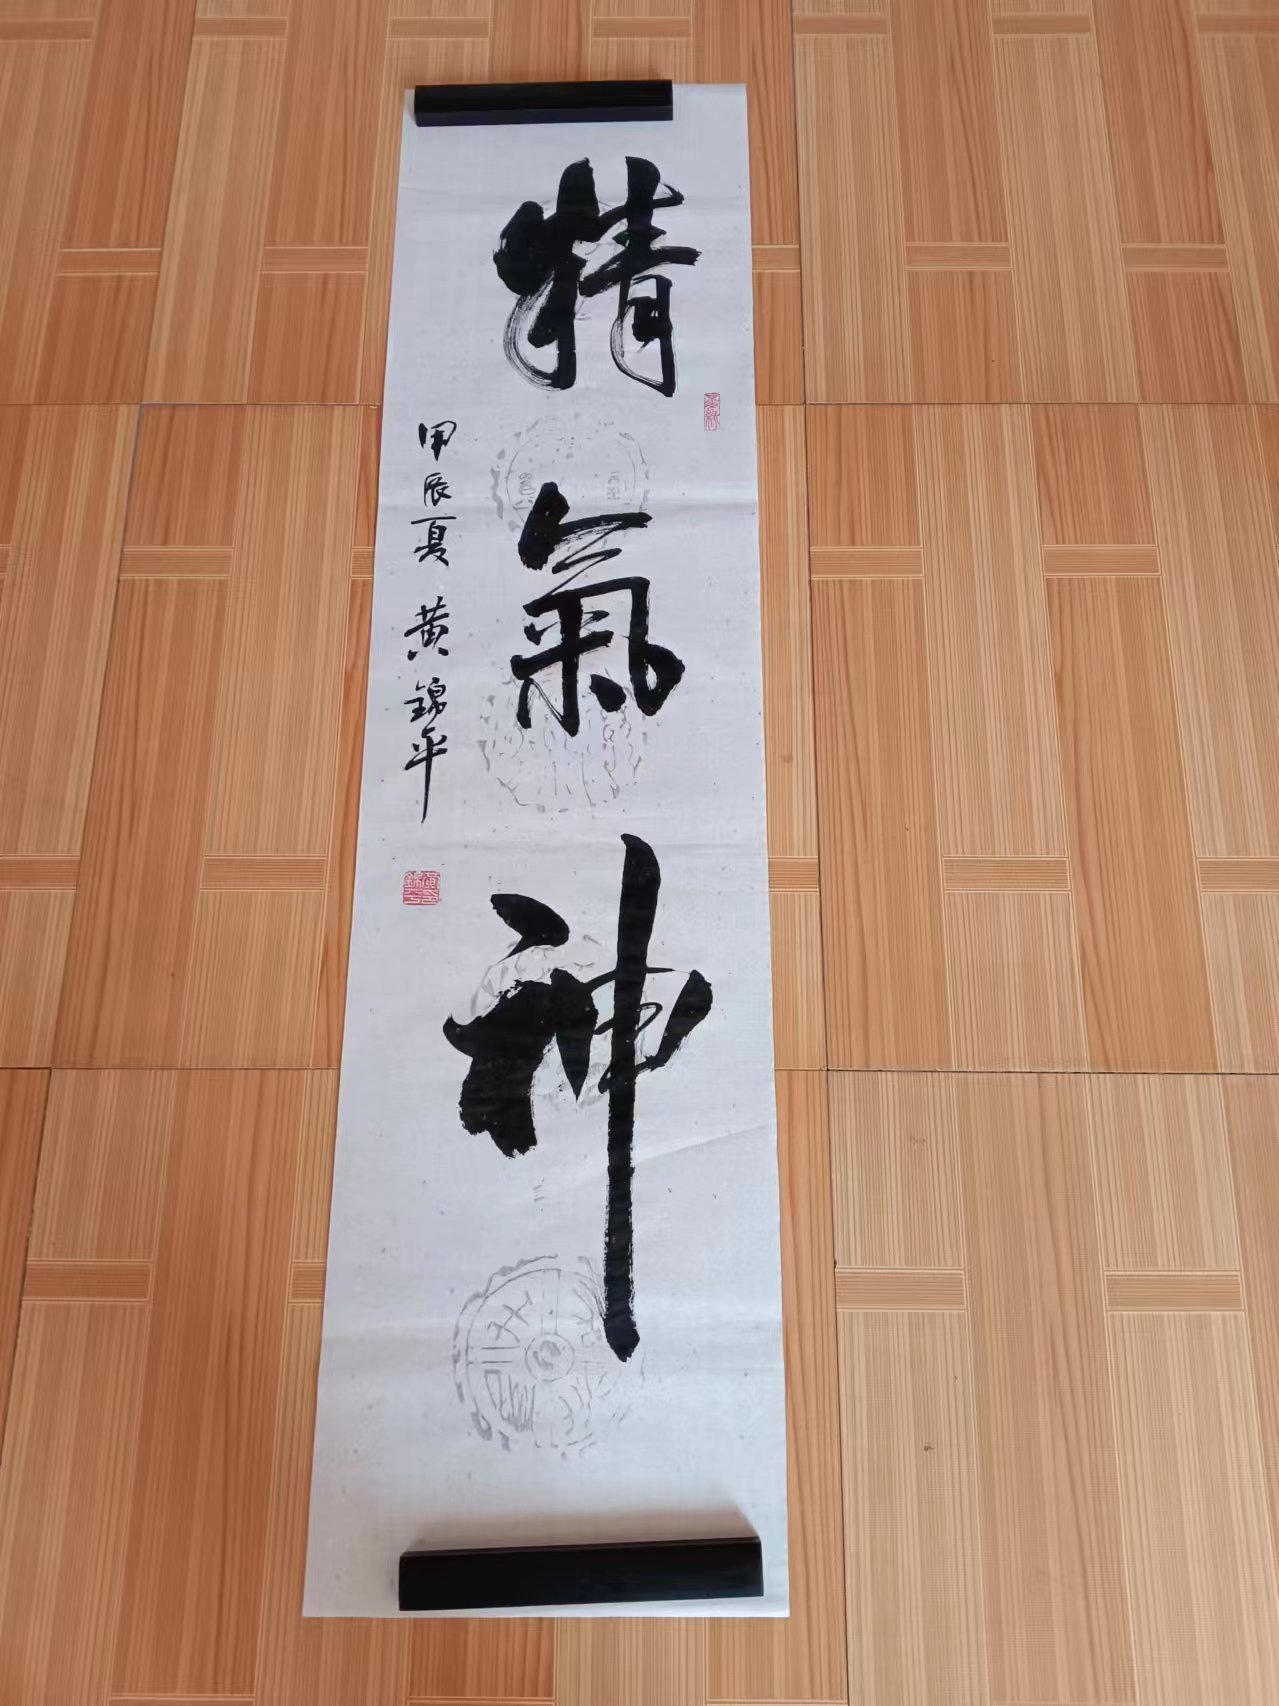 精氣神
甲辰夏 黄錦平